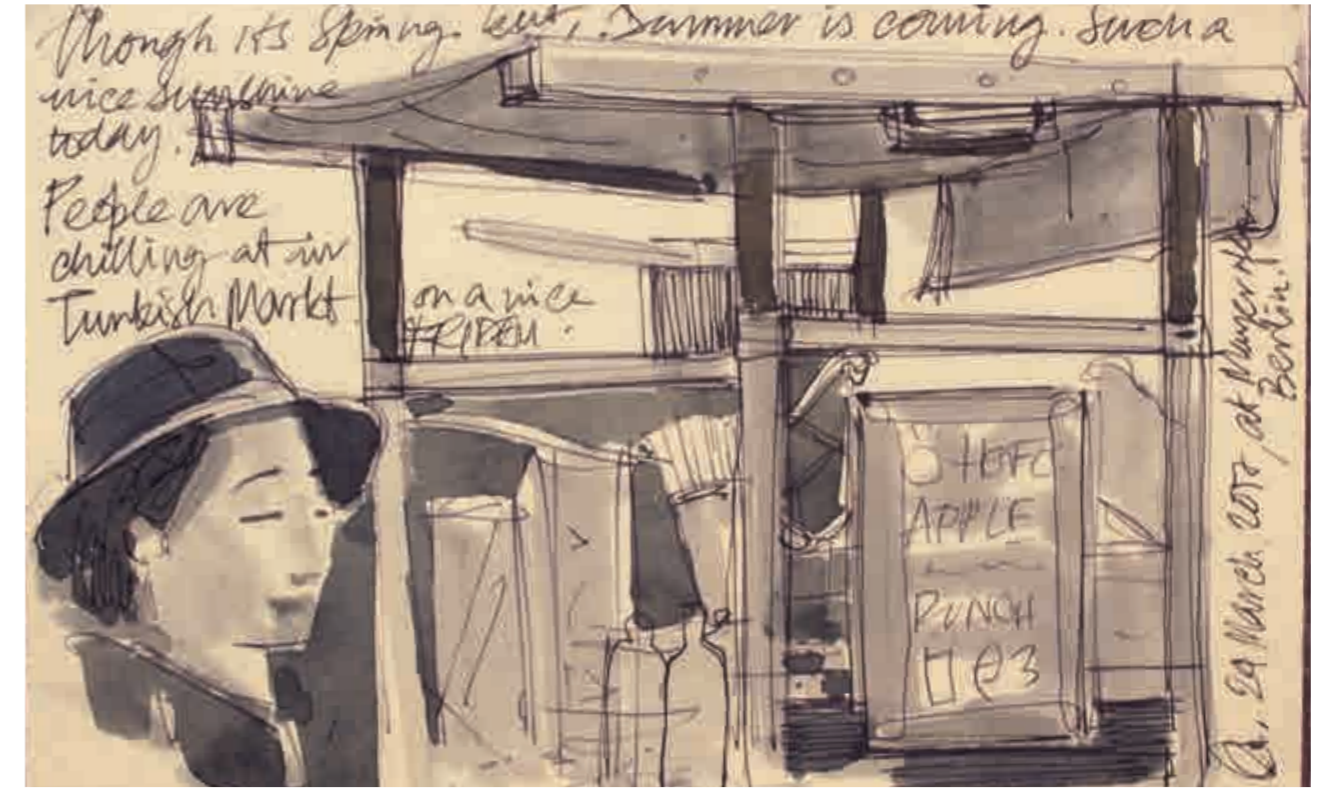 Though it's Spring. but, Summer is coming. Such a
nice sunshine
today.
People are
chilling at in
Turkish Markt
on a nice
HOFC
APPLE
PUNCH
24 March 2017, at
Berlin!